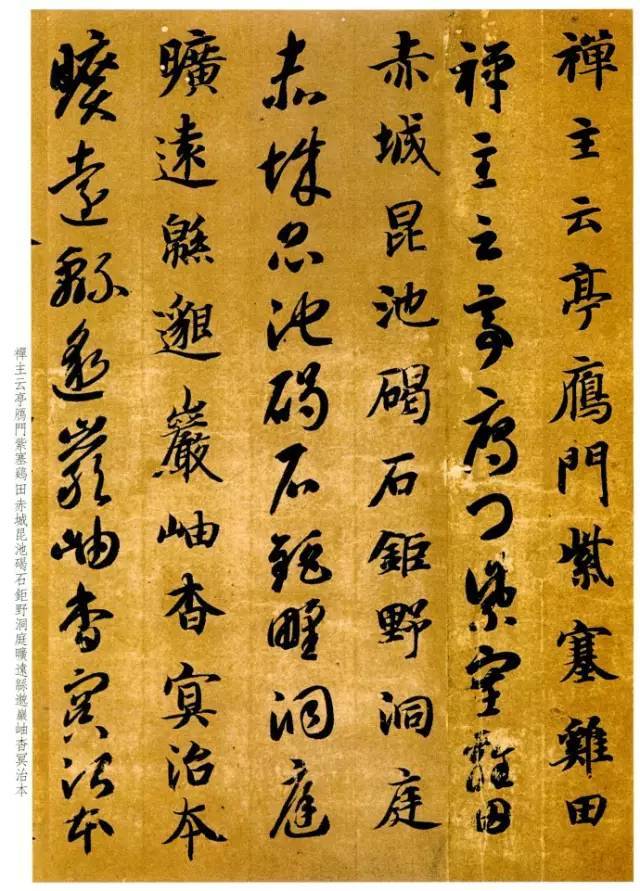 禪主云亭鴈門紫塞雞田
禪主云亭鴈門紫塞雞田
赤城昆池碣石鉅野洞庭
赤城昆池碣石鉅野洞庭
曠遠緜邈巖岫杳冥治本
曠遠緜邈巖岫杳冥治本
禪主云亭鴈門紫塞鷄田赤城昆池碣石鉅野洞庭曠遠緜邈巖岫杳冥治本